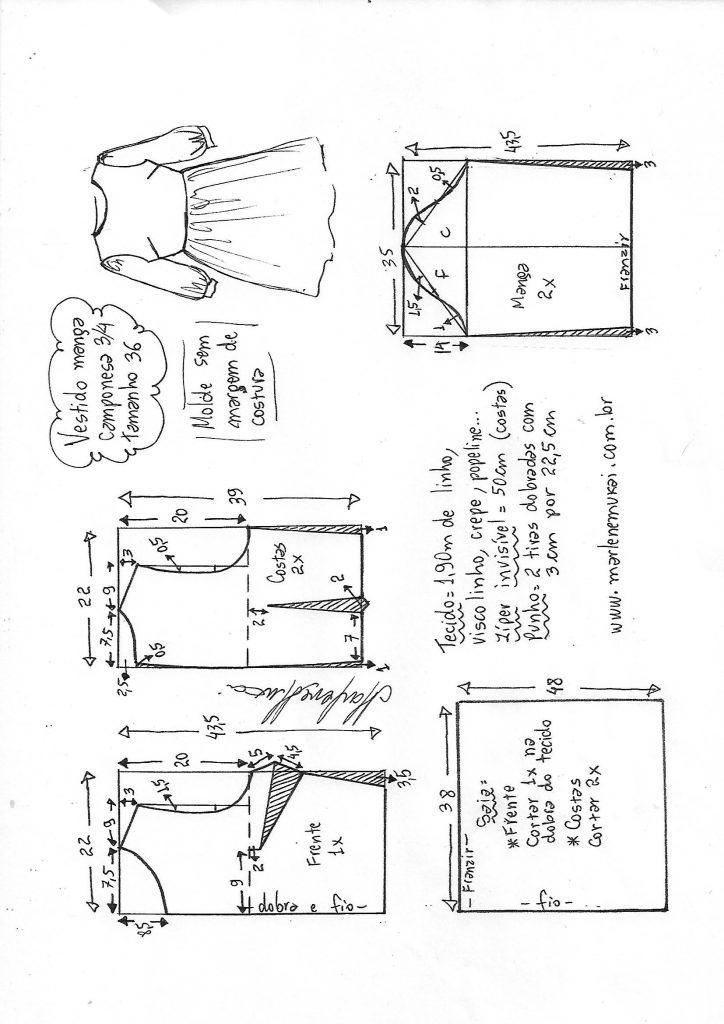 22
7,5
9
3
8,5
1,5
20
43,5
9
2
5
4,5
3,5
Frente
1x
- dobra e fio -
22
7,5
9
2,5
3
0,5
0,5
20
39
Costas
2x
2
2
7
1
1
Vestido manga
camponesa 3/4
tamanho 36
Molde sem
margem de
costura
38
48
- Franzir -
Saia=
*Frente
Cortar 1x na
dobra do tecido
*Costas
Cortar 2x
- fio -
Tecido= 1,90m de linho,
visco linho, crepe, popeline...
Zíper invisível = 50cm (costas)
Punho= 2 tiras dobradas com
3 cm por 22,5 cm
www.marlenemukai.com.br
35
43,5
14
1
1,5
2
0,5
f
c
Manga
2x
Franzir
3
3